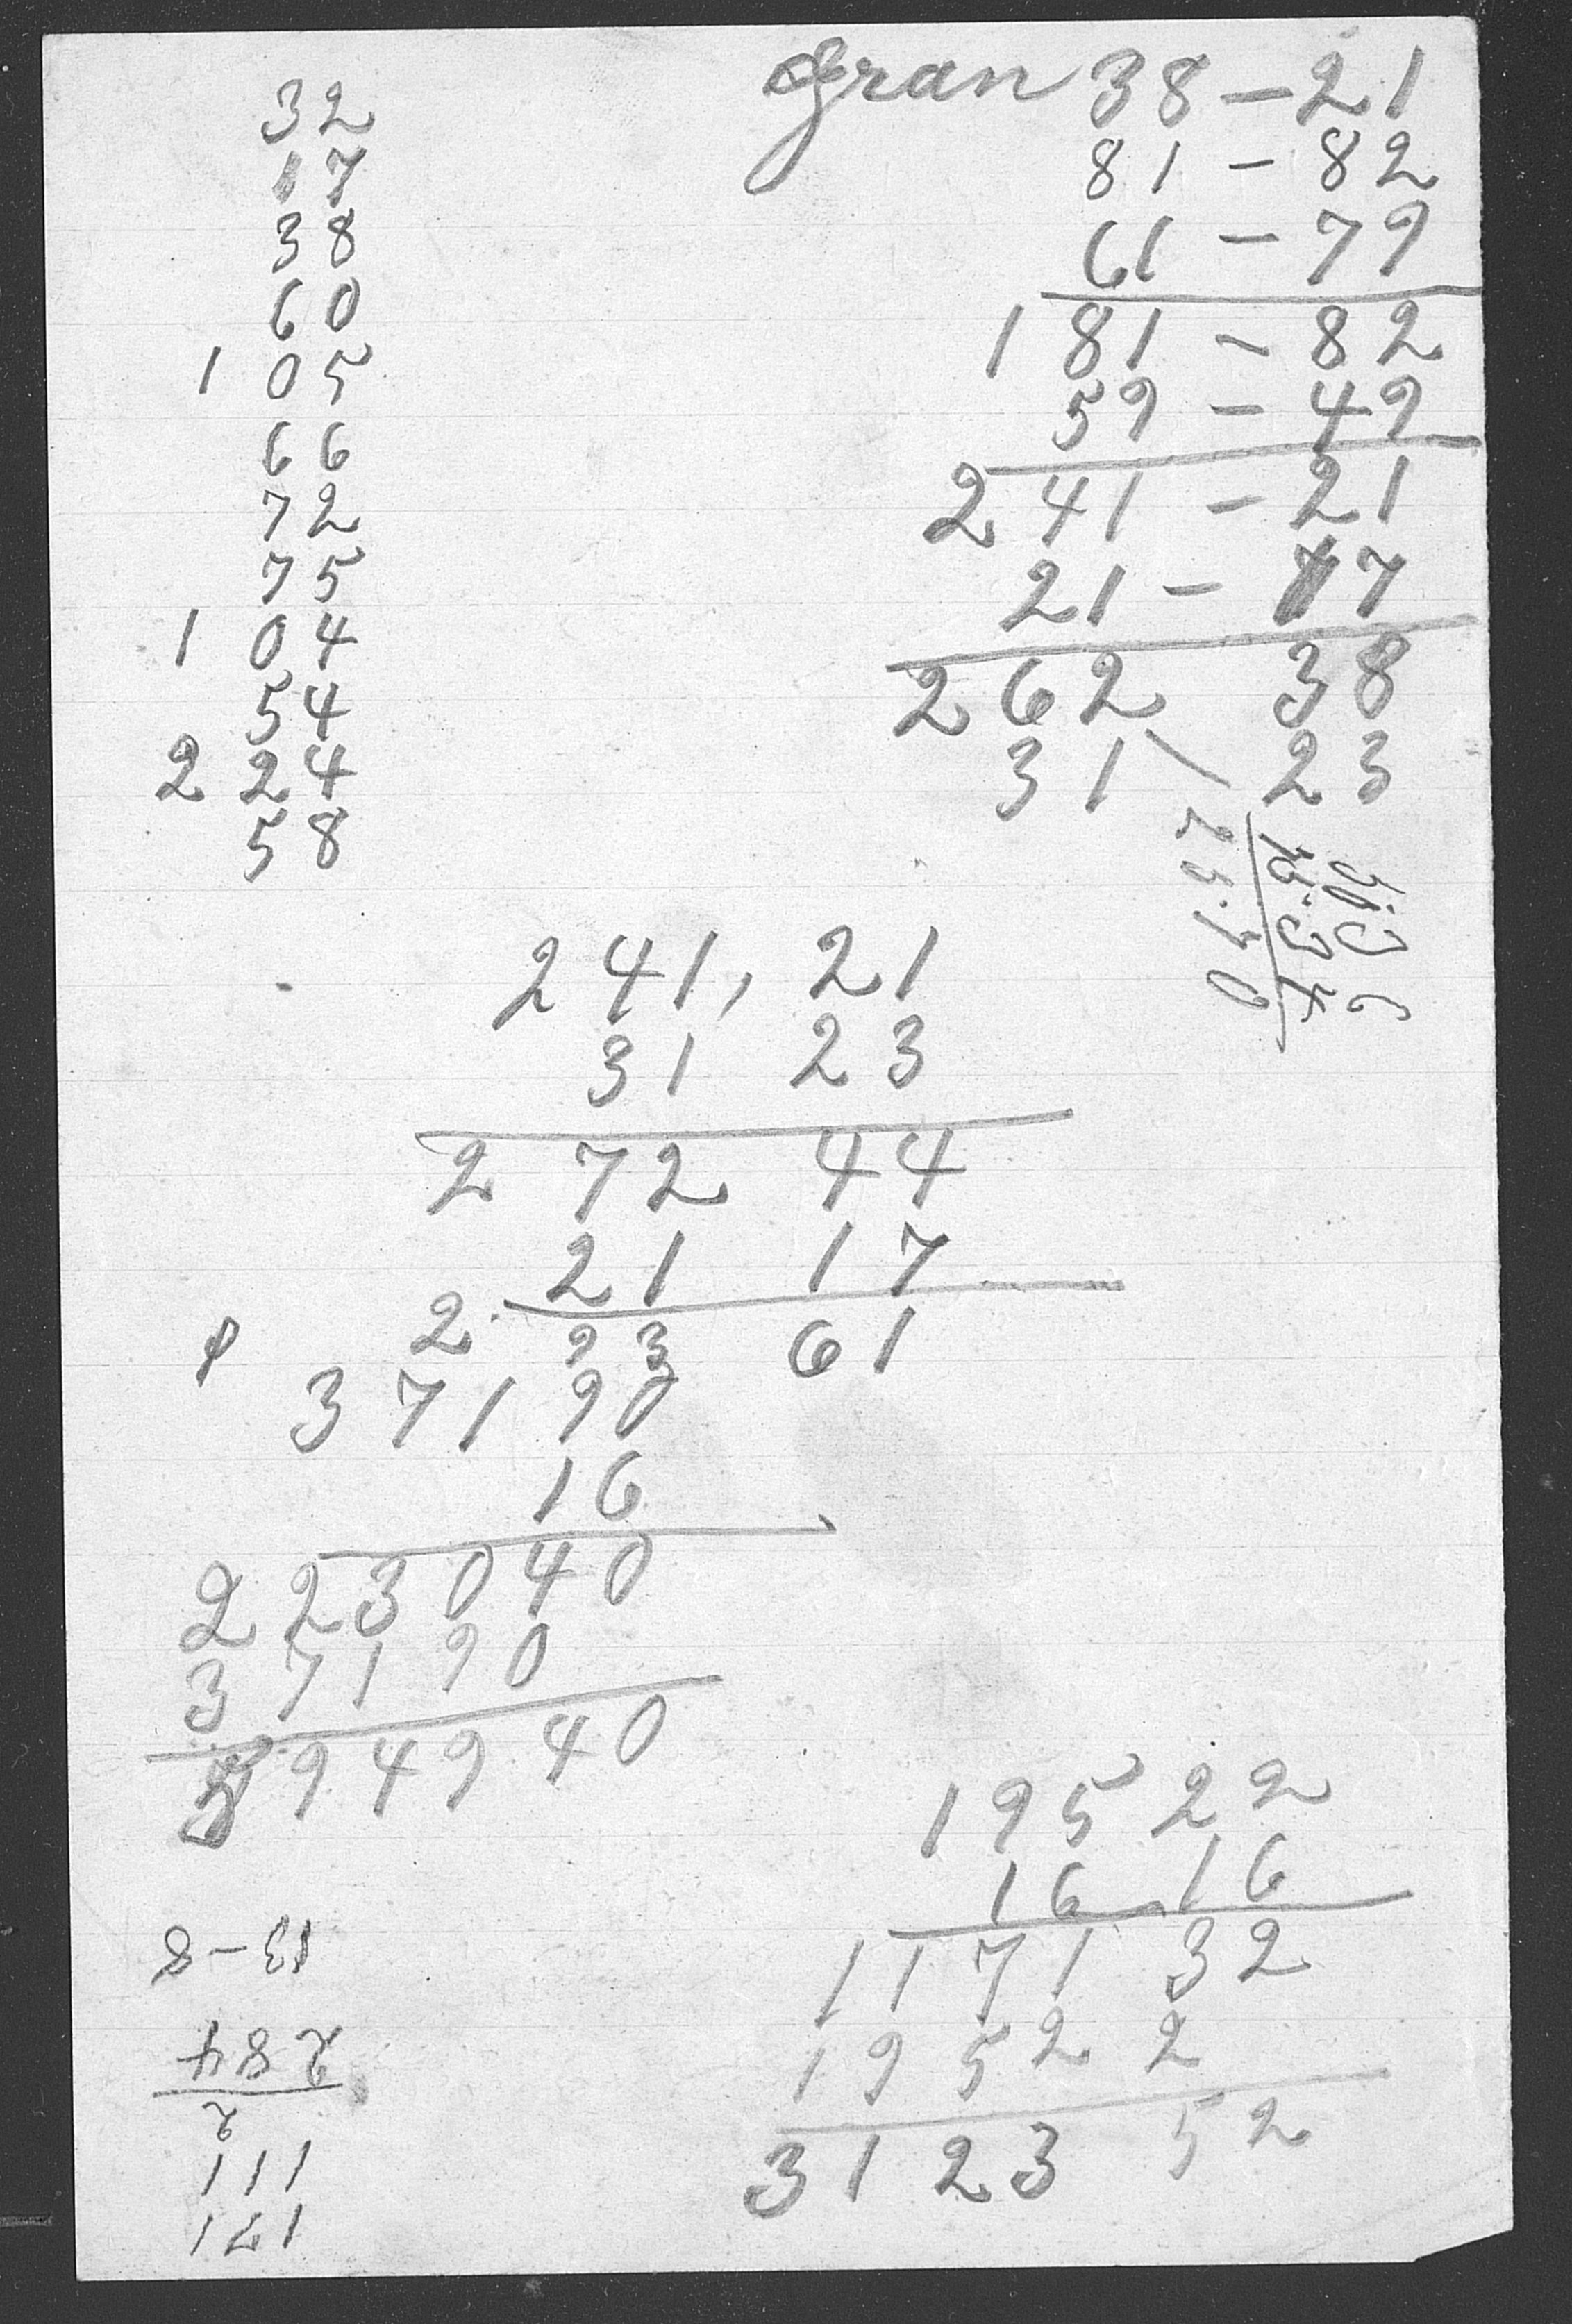 32
17
38
60
1 05
66
72
75
1 04
54
2 24
58
Gran 38 - 21
81 - 82
61 - 79
181 - 82
59 - 49
241 - 21
21 - 17
262 38
31 23
241, 21
31 23
272 44
21 17
2 93 61
37190
16
223040
37190
594940
19522
16 16
1171 32
19522
3123 52
171
111
2
284
13-8